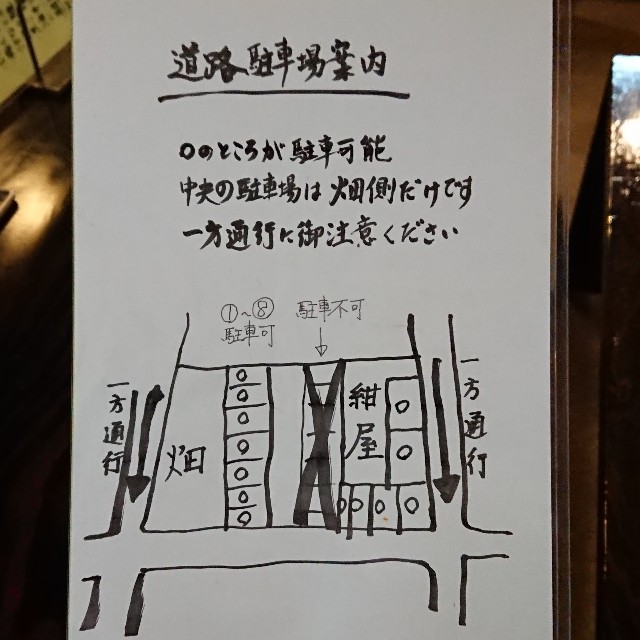 道路駐車場案内
○のところが駐車可能
中央の駐車場は畑側だけです
一方通行に御注意ください
①〜⑧
駐車可
駐車不可
一方通行
畑
紺屋
一方通行